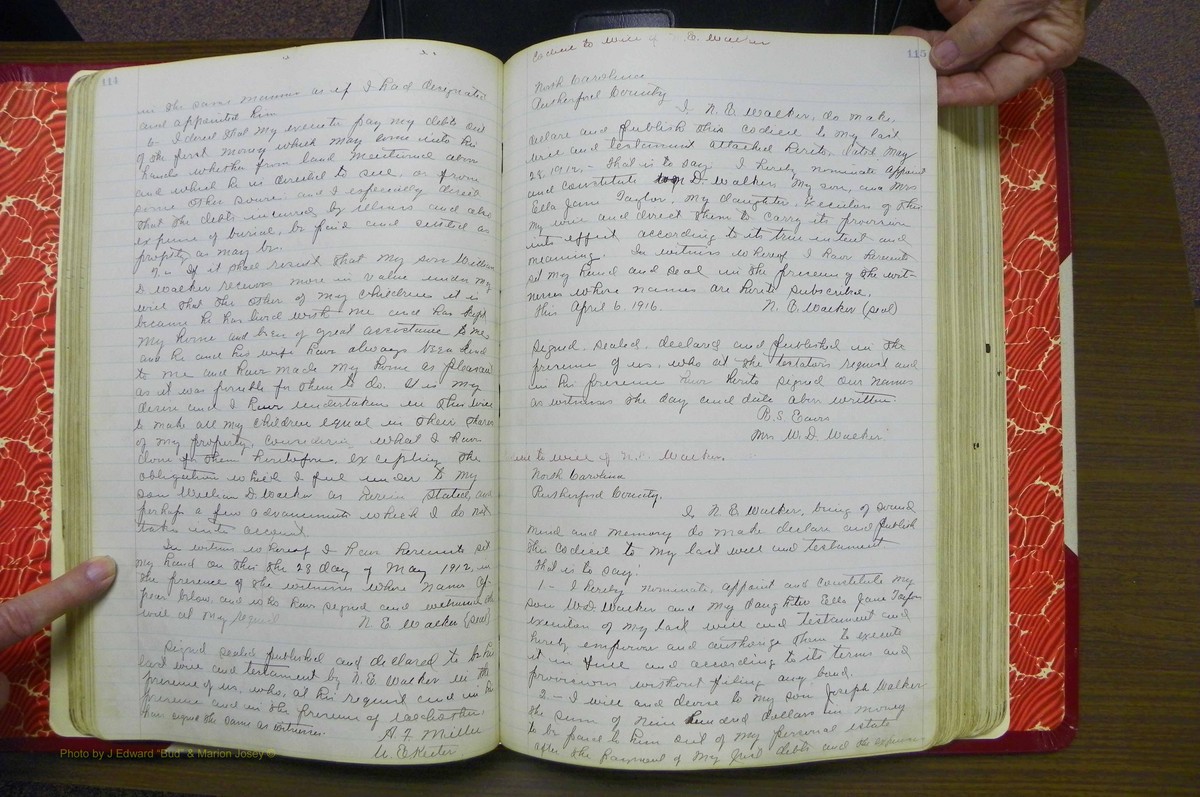 114
in the same manner as if I had designated
and appointed him
6 - I direct that my executor pay my debts out
of the first money which may come into his
hands whether from land mentioned above
and which he is directed to sell, or from
some other source and I especially direct
that the debts incurred by illness and also
expense of burial, be paid and settled as
promptly as may be.
7 - If it shall result that my son William
D. Walker receives more in value under my
will that the other of my children it is
because he has lived with me and has kept
my home and been of great assistance to me
and he and his wife have always been kind
to me and have made my home as pleasant
as it was possible for them to do. It is my
desire and I have undertaken in this will
to make all my children equal in their shares
of my property, considering what I have
done for them heretofore, excepting the
obligation which I feel under to my
son William D. Walker as herein stated, and
perhaps a few advancements which I do not
take into account
In witness whereof I have hereunto set
my hand on this the 23 day of May 1912, in
the presence of the witnesses whose names ap-
pear below, and who have signed and witnessed the
will at my request
N. E. Walker (seal)
Signed sealed published and declared to be his
last will and testament by N. E. Walker in the
presence of us, who, at his request and in his
presence and in the presence of each other
have signed the same as witnesses.
A. F. Miller
115
Codicil to will of N. E. Walker
North Carolina
Rutherford County
I, N. E. Walker, do make,
declare and publish this codicil to my last
will and testament attached hereto, dated May
23, 1912, - that is to say: I hereby nominate appoint
and constitute D. Walker, my son, and Mrs
Ella Jane Taylor, my daughter, Executors of this
my will and direct them to carry its provision
into effect according to its true intent and
meaning. In witness whereof I have hereunto
set my hand and seal in the presence of the wit-
nesses whose names are hereto subscribed,
this April 6, 1916.
N. E. Walker (seal)
Signed, sealed, declared and published in the
presence of us, who at the testators request and
in his presence have hereto signed our names
as witnesses the day and date above written
Mrs W. D. Walker
to will of N. E. Walker.
North Carolina
Rutherford County,
I, N. E. Walker, being of sound
mind and memory do make declare and publish
this codicil to my last will and testament
that is to say:
1 - I hereby nominate, appoint and constitute my
son W. D. Walker and my daughter Ella Jane Taylor
executors of my last will and testament and
hereby empower and authorize them to execute
it in full and according to its terms and
provisions without filing any bond.
2. - I will and devise to my son Joseph Walker
the sum of Nine hundred dollars in money
to be paid to him out of my personal estate
after the payment of my just debts and the expenses
Photo by J Edward "Bud" & Marion Josey ©